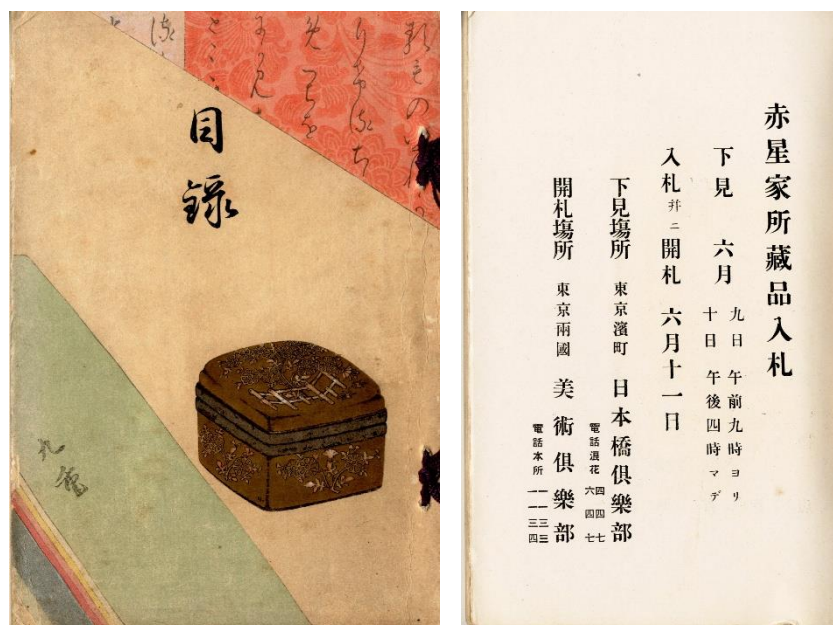 目錄
赤星家所藏品入札
下見 六月 九日 午前九時ヨリ
十日 午後四時マデ
入札幷ニ開札 六月十一日
下見塲所 東京濱町 日本橋倶樂部
電話浪花 四四七
六四七
開札塲所 東京兩國 美術倶樂部
電話本所 一一三三
一一三四